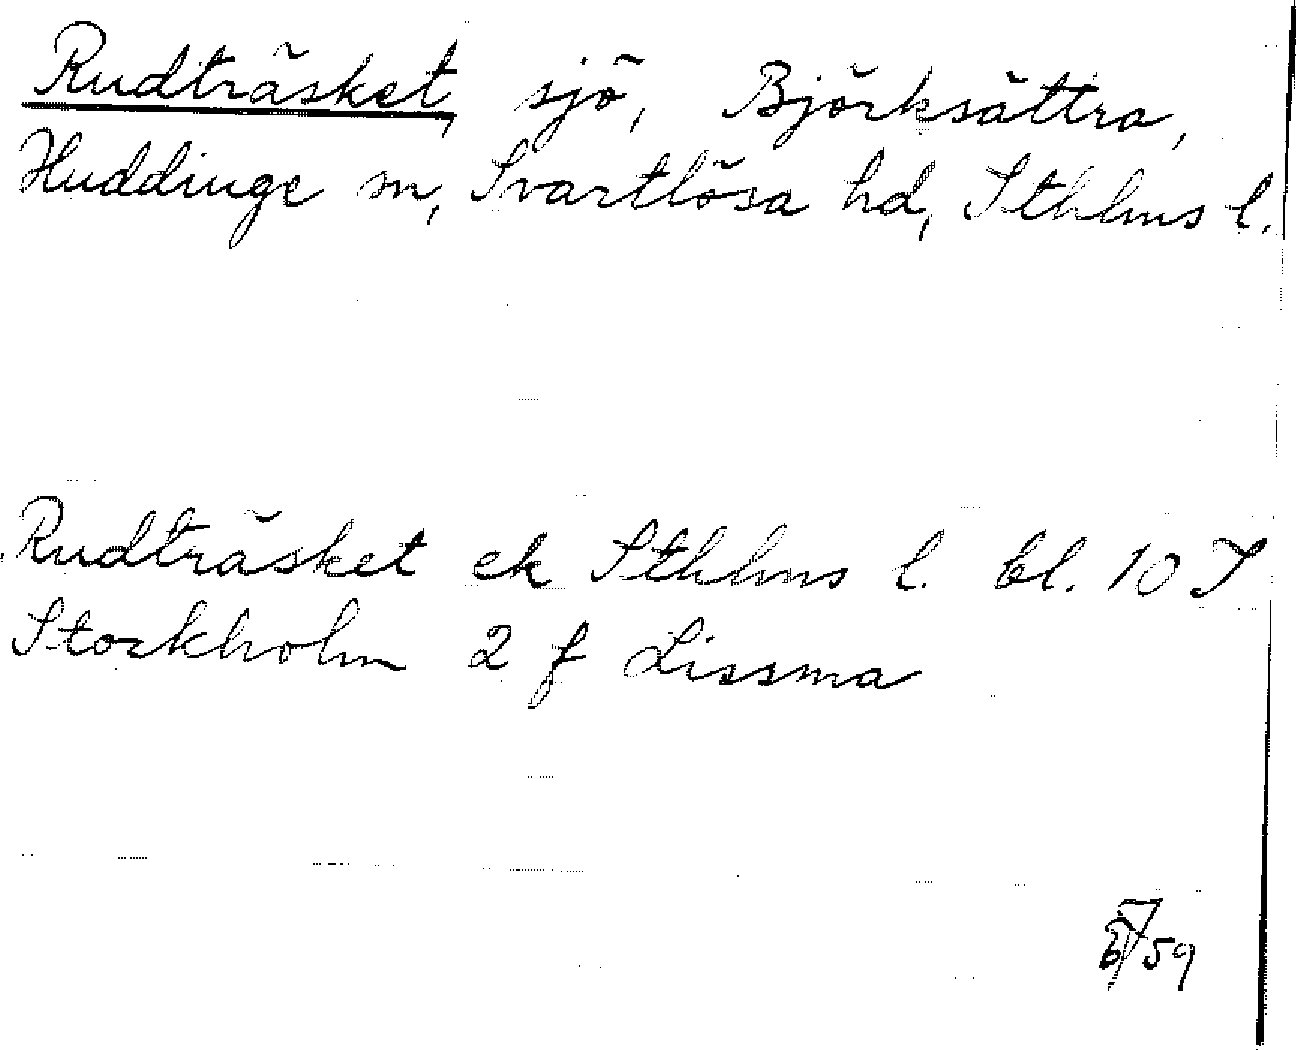 Rudträsket, sjö, Björksättra,
Huddinge sn, Svartlösa hd, Sthlms l.
Rudträsket ek Sthlms l. bl. 10 I
Stockholm 2 f Lissma
59